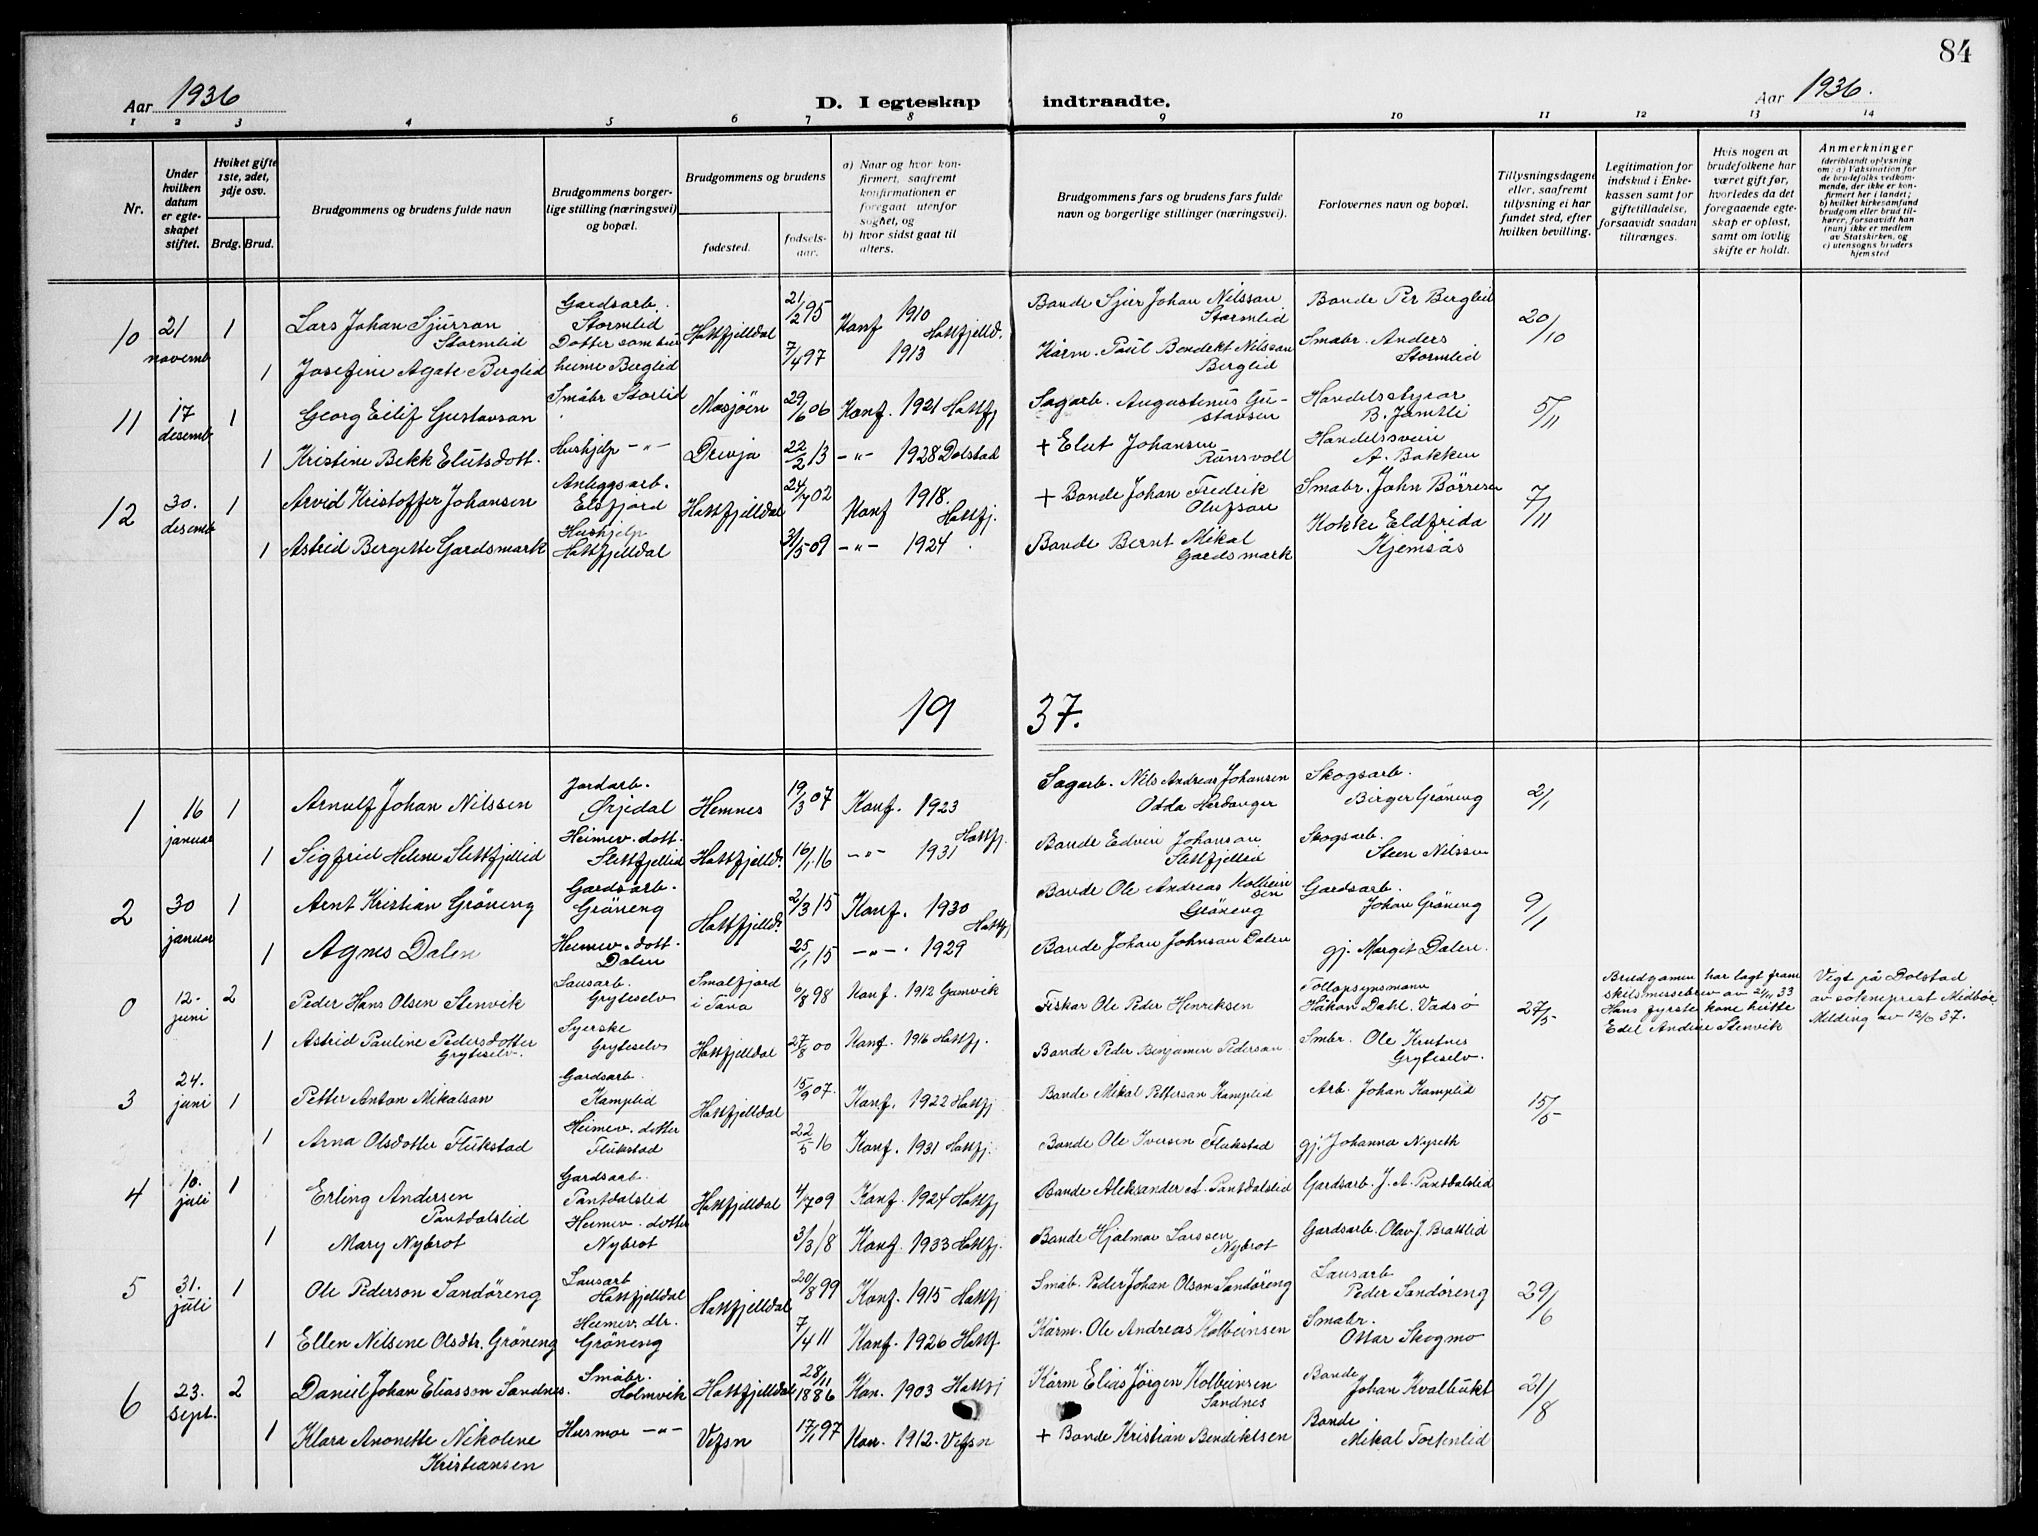 84
Aar 1936
D. I egteskap indtraadte.
Aar 1936.
1 2 3 4 5 6 7 8 9 10 11 12 13 14
Nr.
Under hvilken datum er egteskapet stiftet.
Hvilket gifte 1ste, 2det, 3dje osv.
Brdg. Brud.
Brudgommens og brudens fulde navn
Brudgommens borgerlige stilling (næringsvei) og bopæl.
Brudgommens og brudens
fødested.
fødselsaar.
a) Naar og hvor konfirmert, saafremt konfirmationen er foregaat utenfor sognet, og
b) hvor sidst gaat til alters.
Brudgommens fars og brudens fars fulde navn og borgerlige stillinger (næringsvei).
Forlovernes navn og bopæl.
Tillysningsdagene eller, saafremt tillysning ei har fundet sted, efter hvilken bevilling.
Legitimation for indskud i Enkekassen samt for giftetilladelse, forsaavidt saadan tiltrænges.
Hvis nogen av brudefolkene har været gift før, hvorledes da det foregaaende egteskap er opløst, samt om lovlig skifte er holdt.
Anmerkninger
(deriblandt oplysning om: a) Vaksination for de brudefolks vedkommende, der ikke er konfirmert her i landet; b) hvilket kirkesamfund brudgom eller brud tilhører, forsaavidt han (hun) ikke er medlem av Statskirken, og c) utensogns bruders hjemsted
10 21 novemb 1 Lars Johan Sjurson Stormlid Gardsarb. Stormlid Hattfjelldal 21/2 95 Konf 1910 Hattfjelld. Bonde Sjur Johan Nilsson Stormlid Bonde Per Berglid 20/10
1 Josefine Agate Berglid Dotter som sit heime Berglid 7/4 97 1913 Kårm. Paul Bendekt Nilsson Berglid Småbr. Anders Stormlid
11 17 desemb 1 Georg Eilif Gustavson Småbr Storlid Mosjøen 29/6 06 Konf. 1921 Hattfj Sagarb. Augustinus Gustavsen Handelsstyrar B. Jamtli 5/11
1 Kristine Bekk Elutsdott. Hushjelp -"- Drevja 22/2 13 -"- 1928 Dolstad + Elut Johansen Runsvoll Handelssvein A. Bakken
12 30. desemb 1 Arvid Kristoffer Johansen Anleggsarb. Elsfjord Hattfjelldal 24/7 02 Konf 1918. Hattfj. + Bonde Johan Fredrik Olufson Småbr. John Börresen 7/11
1 Astrid Bergette Gardsmark Hushjelp Hattfjelldal 31/5 09 -"- 1924 Bonde Bernt Mikal Gardsmark Kokke Eldfrida Kjemsås
1937.
1 16 januar 1 Arnulf Johan Nilssen Jordarb. Ørjedal Hemnes 19/3 07 Konf. 1923 Sagarb. Nils Andreas Johansen Odda Hardanger Skogsarb. Birger Gröneng 2/1
1 Sigfrid Helene Slettfjellid Heimev. dott. Slettfjellid Hattfjelld. 16/1 16 -"- 1931 Hattfj. Bonde Edvin Johanson Slettfjellid Skogsarb. Steen Nilssen
2 30 januar 1 Arnt Kristian Gröneng Gardsarb. Gröneng Hattfjelld. 2/3 15 Konf. 1930 Hattfj Bonde Ole Andreas Kolbeinsen Gröneng Gardsarb. Johan Gröneng 9/1
1 Agnes Dalen Heimev. dott. Dalen 25/1 15 -"- 1929 Bonde Johan Johnson Dalen gj. Margit Dalen.
0 12. juni 2 Peder Hans Olsen Stenvik Lausarb. Gryteselv Smalfjord i Tana 6/8 98 Konf. 1912 Gamvik Fiskar Ole Peder Henriksen Tollopsynsmann Håkon Dahl. Vadsø 27/5 Brudgomen har lagt fram skilsmissebrev av 21/11 33 Hans fyrste kone heitte Edel Andine Stenvik Vigt på Dolstad av sokneprest Midbøe Melding av 12/6 37.
1 Astrid Pauline Pedersdotter Gryteselv. Syerske Gryteselv Hattfjelldal 27/8 00 Konf. 1916 Hattfj. Bonde Peder Benjamin Pederson Småbr. Ole Krutnes Gryteselv.
3 24. juni 1 Petter Anton Mikalson Gardsarb. Kamplid Hattfjelldal 15/9 07. Konf. 1922 Hattfj Bonde Mikal Petterson Kamplid Arb. Johan Kamplid 15/5
1 Arna Olsdotter Flukstad Heimev. dotter Flukstad 22/5 16 Konf. 1931 Hattfj. Bonde Ole Iversen Flukstad gj. Johanna Nyseth
4 10. juli 1 Erling Andersen Pantdalslid Gardsarb. Pantdalslid Hattfjelldal 4/7 09 Konf. 1924 Hattfj Bonde Aleksander A. Pantdalslid Gardsarb. J. A. Pantdalslid
1 Mary Nybrot Heimev. dotter Nybrot 3/3 18 Konf. 1933 Hattfj. Bonde Hjalmar Larssen Nybrot Gardsarb. Olav J. Brattlid
5 31. juli 1 Ole Pederson Sandöreng Lausarb Hattfjelldal Hattfjelldal 20/8 99 Konf. 1915 Hattfj Småb. Peder Johan Olson Sandöreng Lausarb Peder Sandöreng 29/6
1 Ellen Nilsine Olsdtr. Gröneng Heimev. dtr. Gröneng 7/4 11 Konf. 1926 Hattfj. Kårm. Ole Andreas Kolbeinsen Småbr. Ottar Skogmo
6 23. sept. 2 Daniel Johan Eliasson Sandnes. Småbr. Holmvik Hattfjelldal 28/11 1886 Kon. 1903 Hattfj Kårm Elias Jörgen Kolbeinsen Sandnes Bonde Johan Kvalbukt 21/8
1 Klara Anonette Nikoline Kristiansen Husmor -"- Vefsn 17/1 97 Kon. 1912. Vefsn + Bonde Kristian Bendiktsen Bonde Mikal Tortenlid